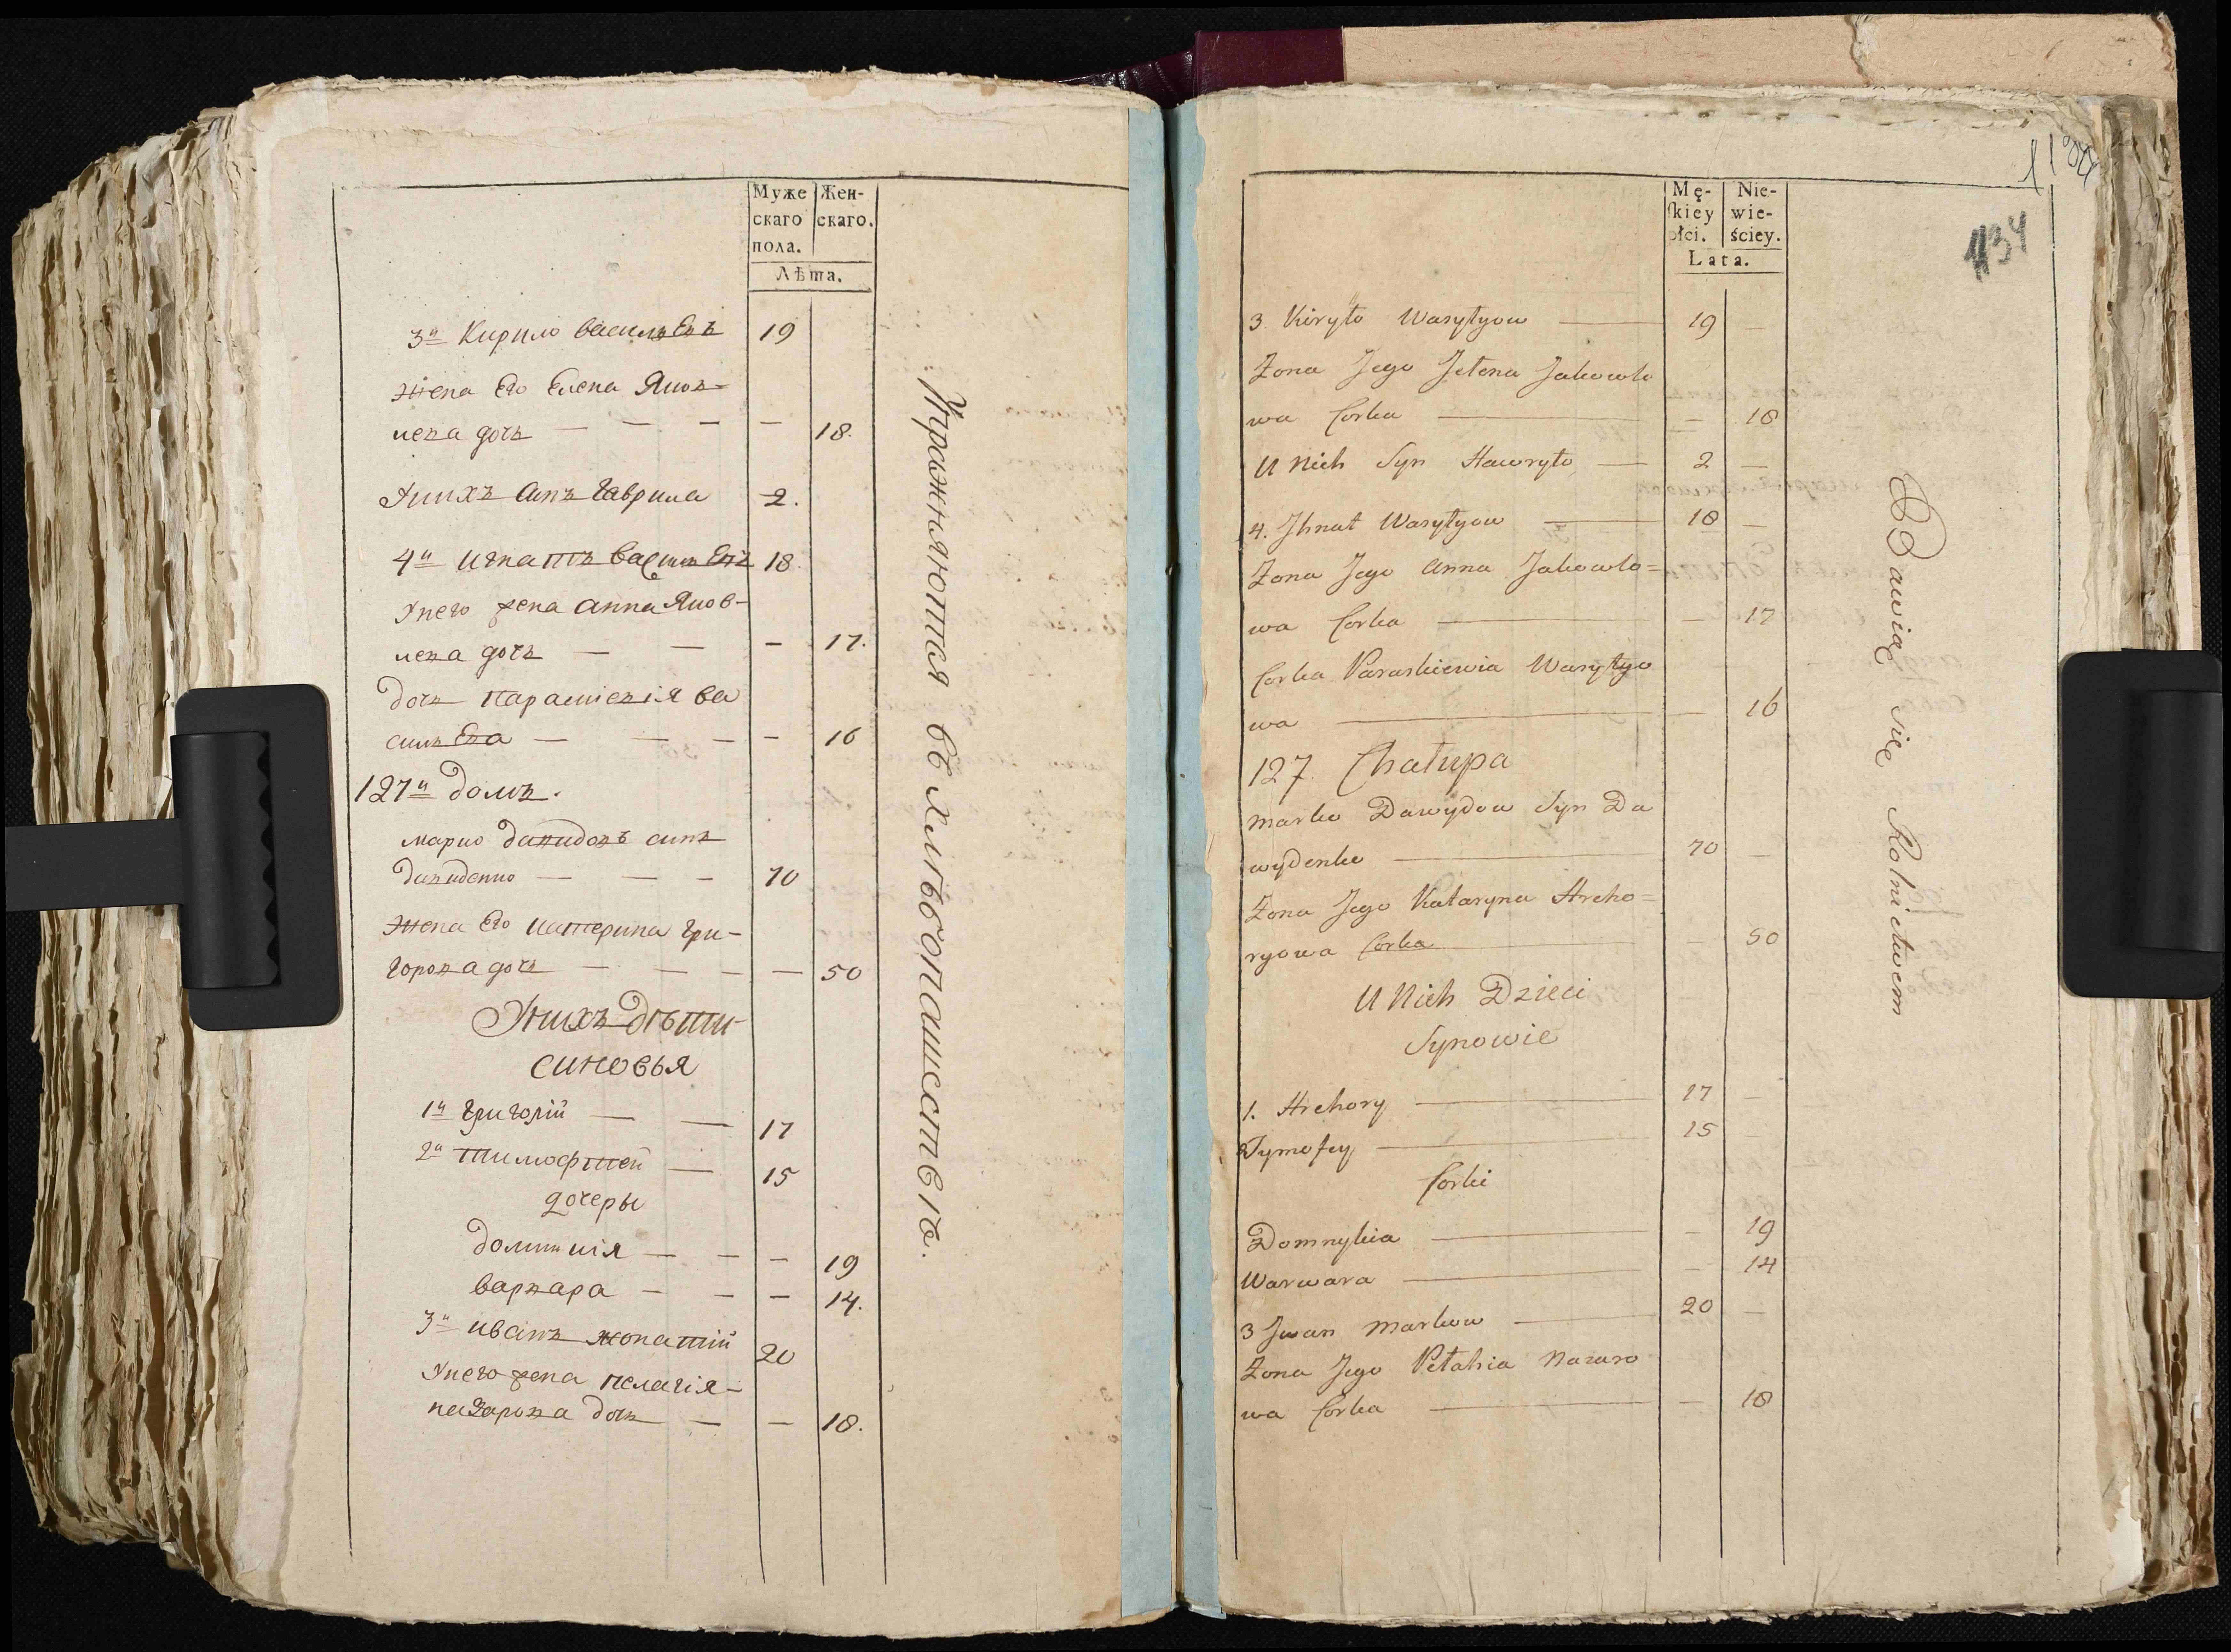 Муже
скаго
пола.
Жен-
скаго.
Лѣта.
3й Кирило василъевъ 19
жена его Елена Яков-
лева дочь — — — — 18.
Унихъ синъ гаврила 2.
4й игнатъ василъевъ 18.
Унего жена анна Яков-
лева дочь — — — 17.
дочь параскевія ва
силъева — — — — 16
127й домъ.
марко давидовъ синъ
давиденко — — — 70
жена его катерина гри-
горова дочь — — — — 50
Унихъ дѣти
синовья
1й григорій — — 17
2й тимофтей — 15
дочеры
домникія — — — 19
варвара — — — 14.
3й иванъ женатій 20
Унего жена пелагія-
назарова дочь — — 18.
Упражняются въ хлѣбопашествѣ.
Mę-
skiey
płci.
Nie-
wie-
ściey.
Lata.
1134
3. Kiryło Wasylyow — 19 —
Żona Jego Jełena Jakowle
wa Corka — — 18
U Nich Syn Hawryło — 2 —
4. Jhnat Wasylyow — 18 —
Żona Jego Anna Jakowle=
wa Corka — — 17
Corka Paraskiewia Wasylye
wa — — 16
127. Chałupa
Marko Dawydow Syn Da
wydenko — 70 —
Żona Jego Kataryna Hreho=
ryowa Corka — 50
U Nich Dzieci
Synowie
1. Hrehory — 17 —
2 Tymofey — 15 —
Corki
Domnykia — — 19
Warwara — — 14
3 Jwan Markow — 20 —
Żona Jego Pełahia Nazaro
wa Corka — — 18
Bawią się Rolnictwem